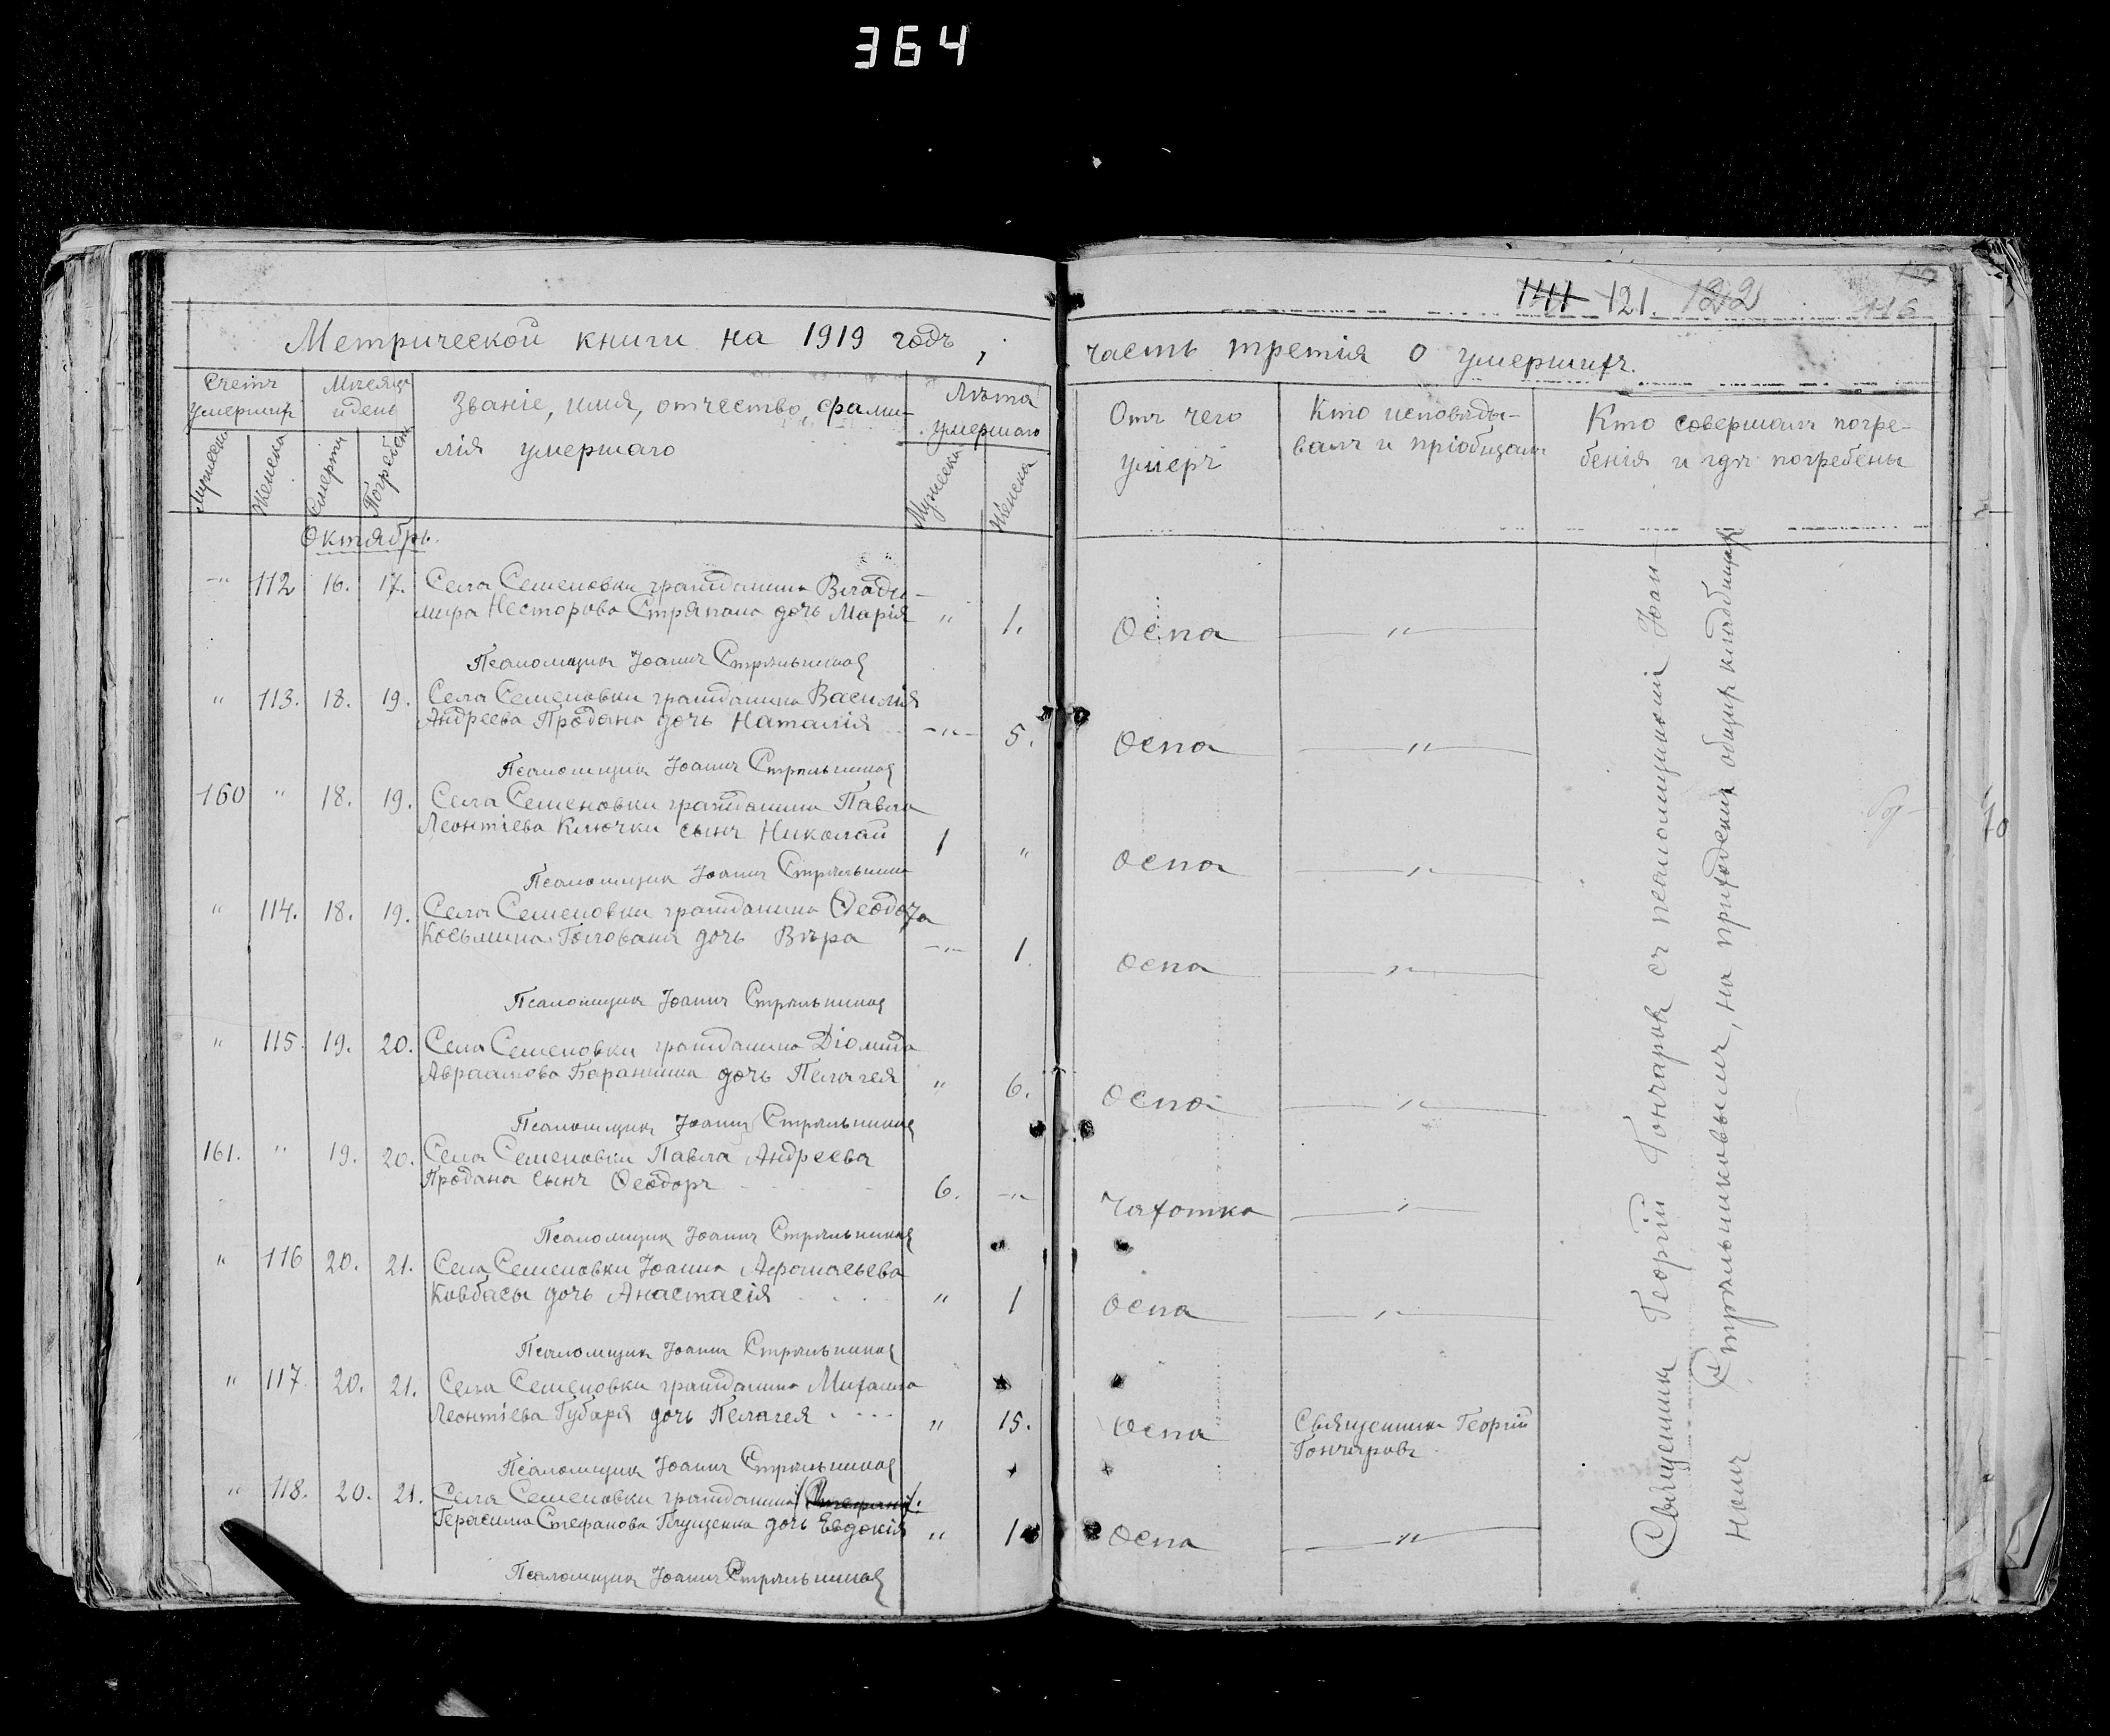 364
141 121. 122
Метрической книги на 1919 годъ,
часть третія о умершихъ.
Счетъ умершихъ
Мужеска
Женска
Мѣсяцъ и день
Смерти
Погребен
Званіе, имя, отчество, фами-
лія умершаго
Лѣта умершаго
Мужеска
Женска
Отъ чего умеръ
Кто исповѣды-
валъ и пріобщалъ
Кто совершалъ погре-
бенія и гдѣ погребены
Октябрь.
-"- 112 16. 17. Села Семеновки гражданина Влади-
мира Несторова Стряпана дочь Марія " 1. Оспа "
Псаломщикъ Іоаннъ Стрѣльниковъ
" 113. 18. 19. Села Семеновки гражданина Василія
Андреева Продана дочь Наталія -"- 5. Оспа "
Псаломщикъ Іоаннъ Стрѣльниковъ
160 " 18. 19. Села Семеновки гражданина Павла
Леонтіева Ключки сынъ Николай 1 " Оспа "
Псаломщикъ Іоаннъ Стрѣльников
" 114. 18. 19. Села Семеновки гражданина Ѳеодора
Косьмина Голованя дочь Вѣра -"- 1. Оспа "
Псаломщикъ Іоаннъ Стрѣльниковъ
" 115. 19. 20. Села Семеновки гражданина Діомида
Авраамова дочь Пелагея " 6. Оспа "
Псаломщикъ Іоаннъ Стрѣльниковъ
161. " 19. 20. Села Семеновки Павла Андреева
Продана сынъ Ѳеодоръ 6. -"- Чахотка "
Псаломщикъ Іоаннъ Стрѣльниковъ
" 116 20. 21. Села Семеновки Іоанна Афанасьева
Ковбасы дочь Анастасія " 1 Оспа "
Псаломщикъ Іоаннъ Стрѣльниковъ
" 117. 20. 21. Села Семеновки гражданина Михаила
Леонтіева Губаря дочь Пелагея " 15. Оспа Священникъ Георгій
Гончаровъ
Псаломщикъ Іоаннъ Стрѣльниковъ
" 118. 20. 21. Села Семеновки гражданина (Стефана).
Герасима Стефанова дочь Евдокія " 1 Оспа "
Псаломщикъ Іоаннъ Стрѣльниковъ
Священникъ Георгій Гончаровъ съ псаломщикомъ Іоан-
номъ Стрѣльниковымъ, на приходскихъ общихъ кладбищахъ
70